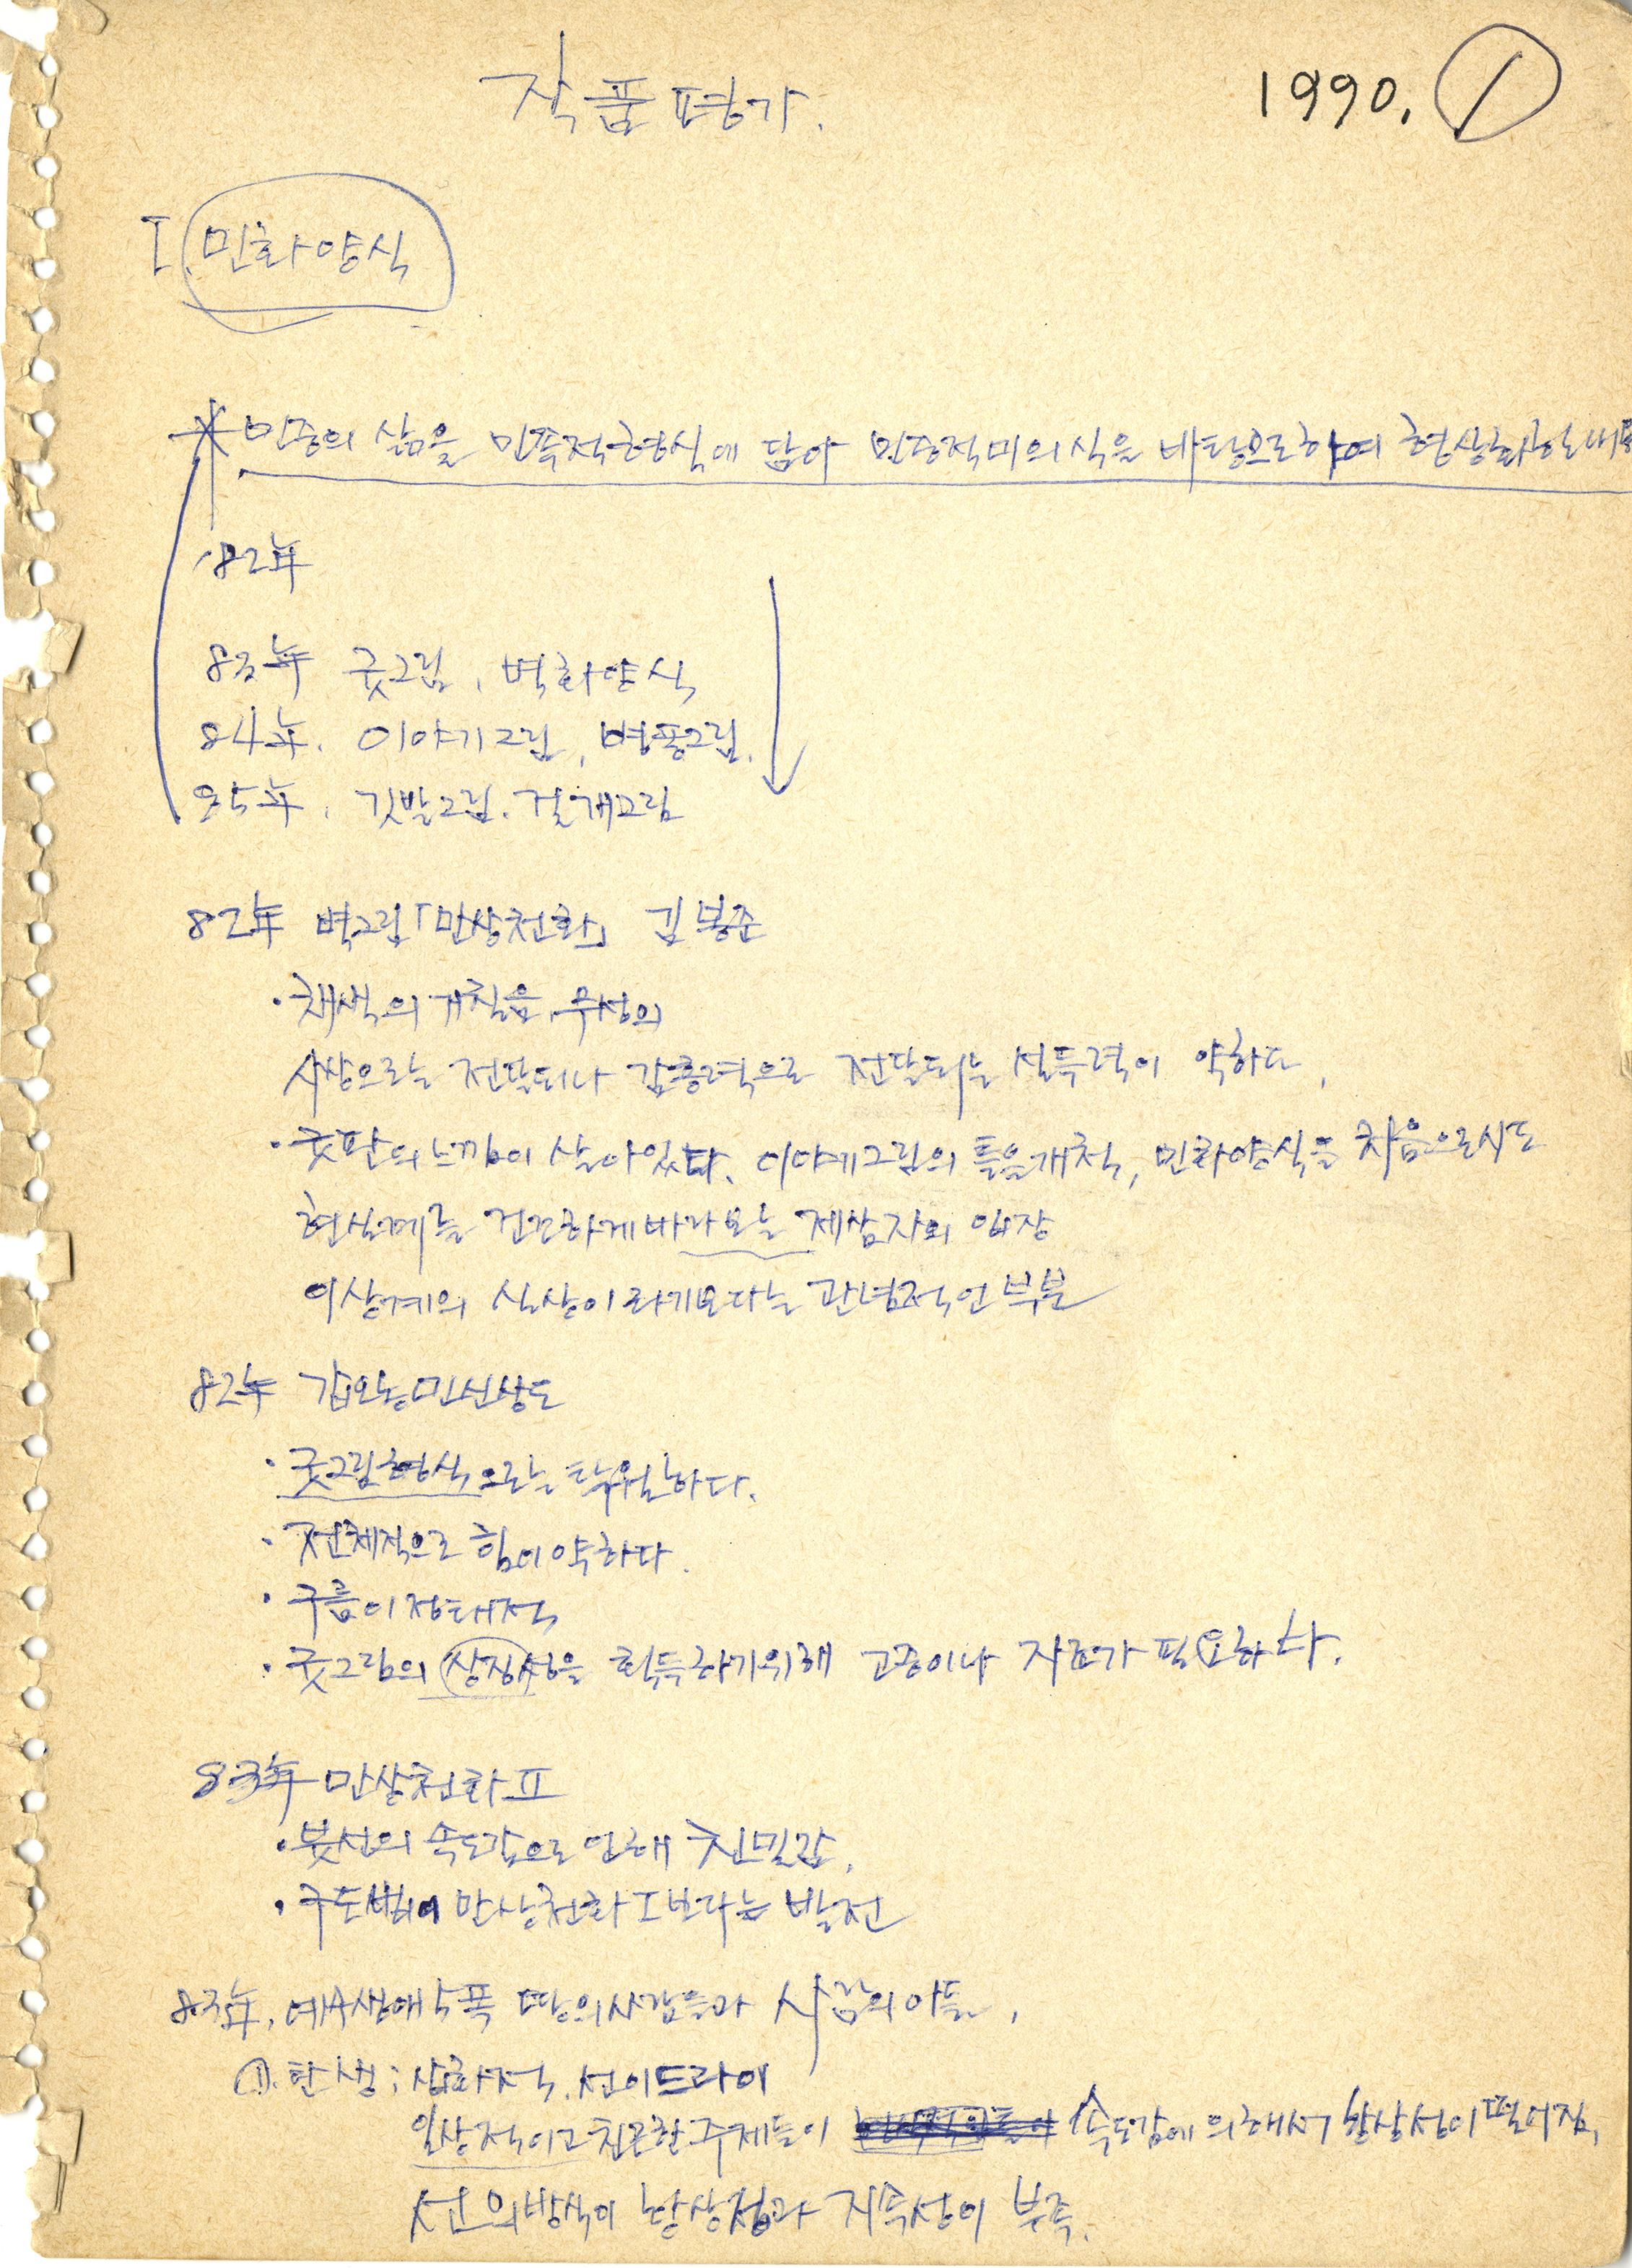 작품평가.
1990. ①
I. 민화양식
* 민중의 삶을 민족적형식에 담아 민중적미의식을 바탕으로하여 형상화한
82年
83年 굿그림, 벽화양식
84年. 이야기그림, 병풍그림.
85年. 깃발그림. 걸개그림
82年 벽그림「만상천화」 김봉준
· 채색의 무성의
사상으로는 전달되나 감흥력으로 전달되는 설득력이 약하다.
· 굿판의 느낌이 살아있다. 이야기그림의 틀을개척, 민화양식을 처음으로시도
현실계를 건강하게바라보는 제삼자의 입장
이상계의 실상이라기보다는 관념적인 부분
82年 갑오농민신상도
· 굿그림형식으로는 탁월하다.
· 전체적으로 힘이약하다.
· 구름이정태적
· 굿그림의 상징성을 획득하기위해 고증이나 자료가 필요하다.
83年 만상천화 II
· 붓선의 속도감으로 인해 친밀감.
· 구도법이 만상천화 I보다는 발전
83年. 예수생애5폭 땅의사람들과 사람의아들.
①. 탄생; 삽화적. 선이드라이
일상적이고친근한주제들이 속도감에의해서 항상성이떨어짐.
선의방식이 항상점과 지속성이 부족.